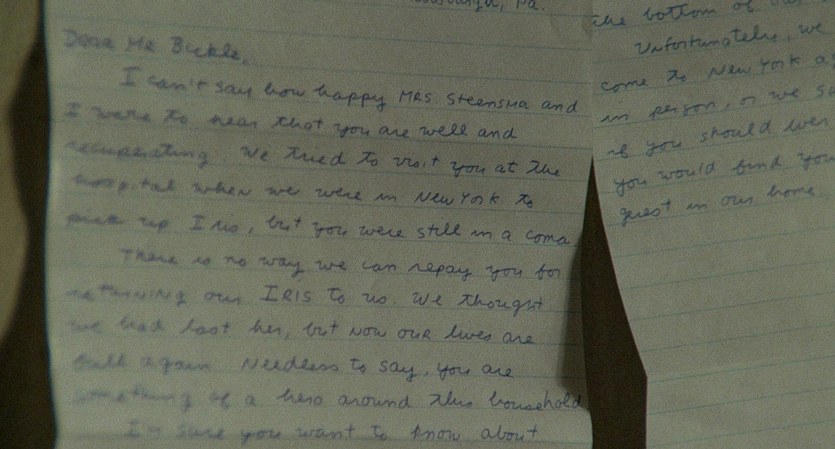 Pa.
Dear Mr Bickle,
I can't say how happy MRS. Steensma and
I were to hear that you are well and
recuperating. We tried to visit you at the
hospital when we were in New York to
pick up Iris, but you were still in a coma.
There is no way we can repay you for
returning our IRIS to us. We thought
we had lost her, but NOW OUR lives are
full again. Needless to say, you are
something of a hero around this household
I'm sure you want to know about
the bottom of our
Unfortunately, we
come to New York
in person, or we
if you should ever
you would find you
guest in our home